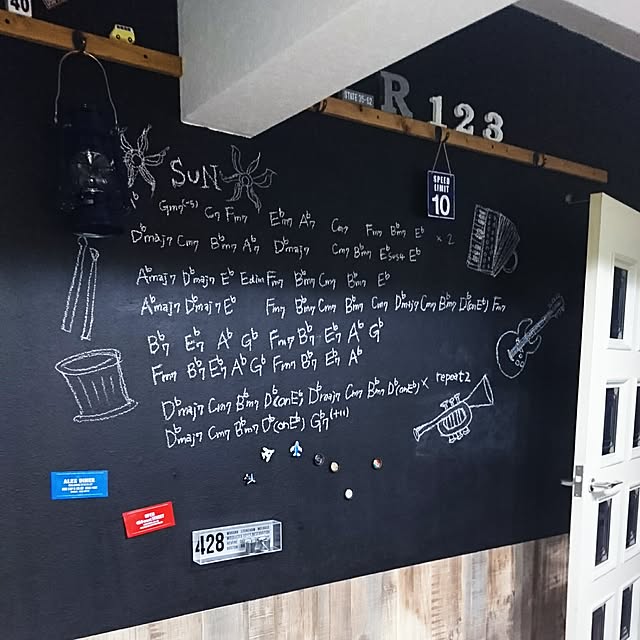 40
STATE 35-52
R 123
SPEED
LIMIT
10
SUN
Gm7(-5) C7 Fm7 E♭m7 A♭7 Cm7 Fm7 B♭m7 E♭ × 2
D♭maj7 Cm7 B♭m7 A♭7 D♭maj7 Cm7 B♭m7 E♭sus4 E♭
A♭maj7 D♭maj7 E♭ Edim Fm7 B♭m7 Cm7 B♭m7 E♭
A♭maj7 D♭maj7 E♭ Fm7 B♭m7 Cm7 B♭m7 Cm7 D♭maj7 Cm7 B♭m7 D♭(onE♭) Fm7
B♭7 E♭7 A♭ G♭ Fm7 B♭7 E♭7 A♭ G♭
Fm7 B♭7 E♭7 A♭ G♭ Fm7 B♭7 E♭7 A♭
D♭maj7 Cm7 B♭m7 D♭(onE♭) D♭maj7 Cm7 B♭m7 D♭(onE♭) × repeat2
D♭maj7 Cm7 B♭m7 D♭(onE♭) G♭7(+11)
ALEX DINER
428